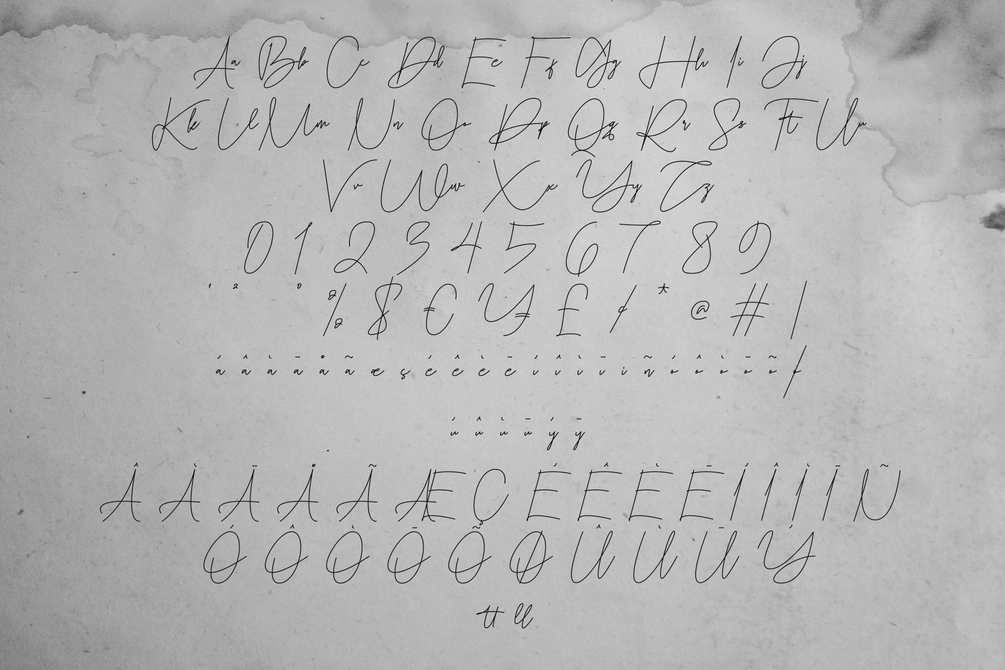 Aa Bb Cc Dd Ee Ff Gg Hh Ii Jj
Kk Ll Mm Nn Oo Pp Qq Rr Ss Tt Uu
Vv Ww Xx Yy Zz
0 1 2 3 4 5 6 7 8 9
¹ ² º % $ € ¥ £ ¢ * @ # |
á â à ä å ã æ ç é ê è ë í î ì ï i ñ ó ô ò ö õ ø
ú û ù ü ý ÿ
Â À Ä Å Ã Æ Ç É Ê È Ë Í Î Ì Ï Ñ
Ó Ô Ò Ö Õ Ø Û Ù Ü Ý
tt ll